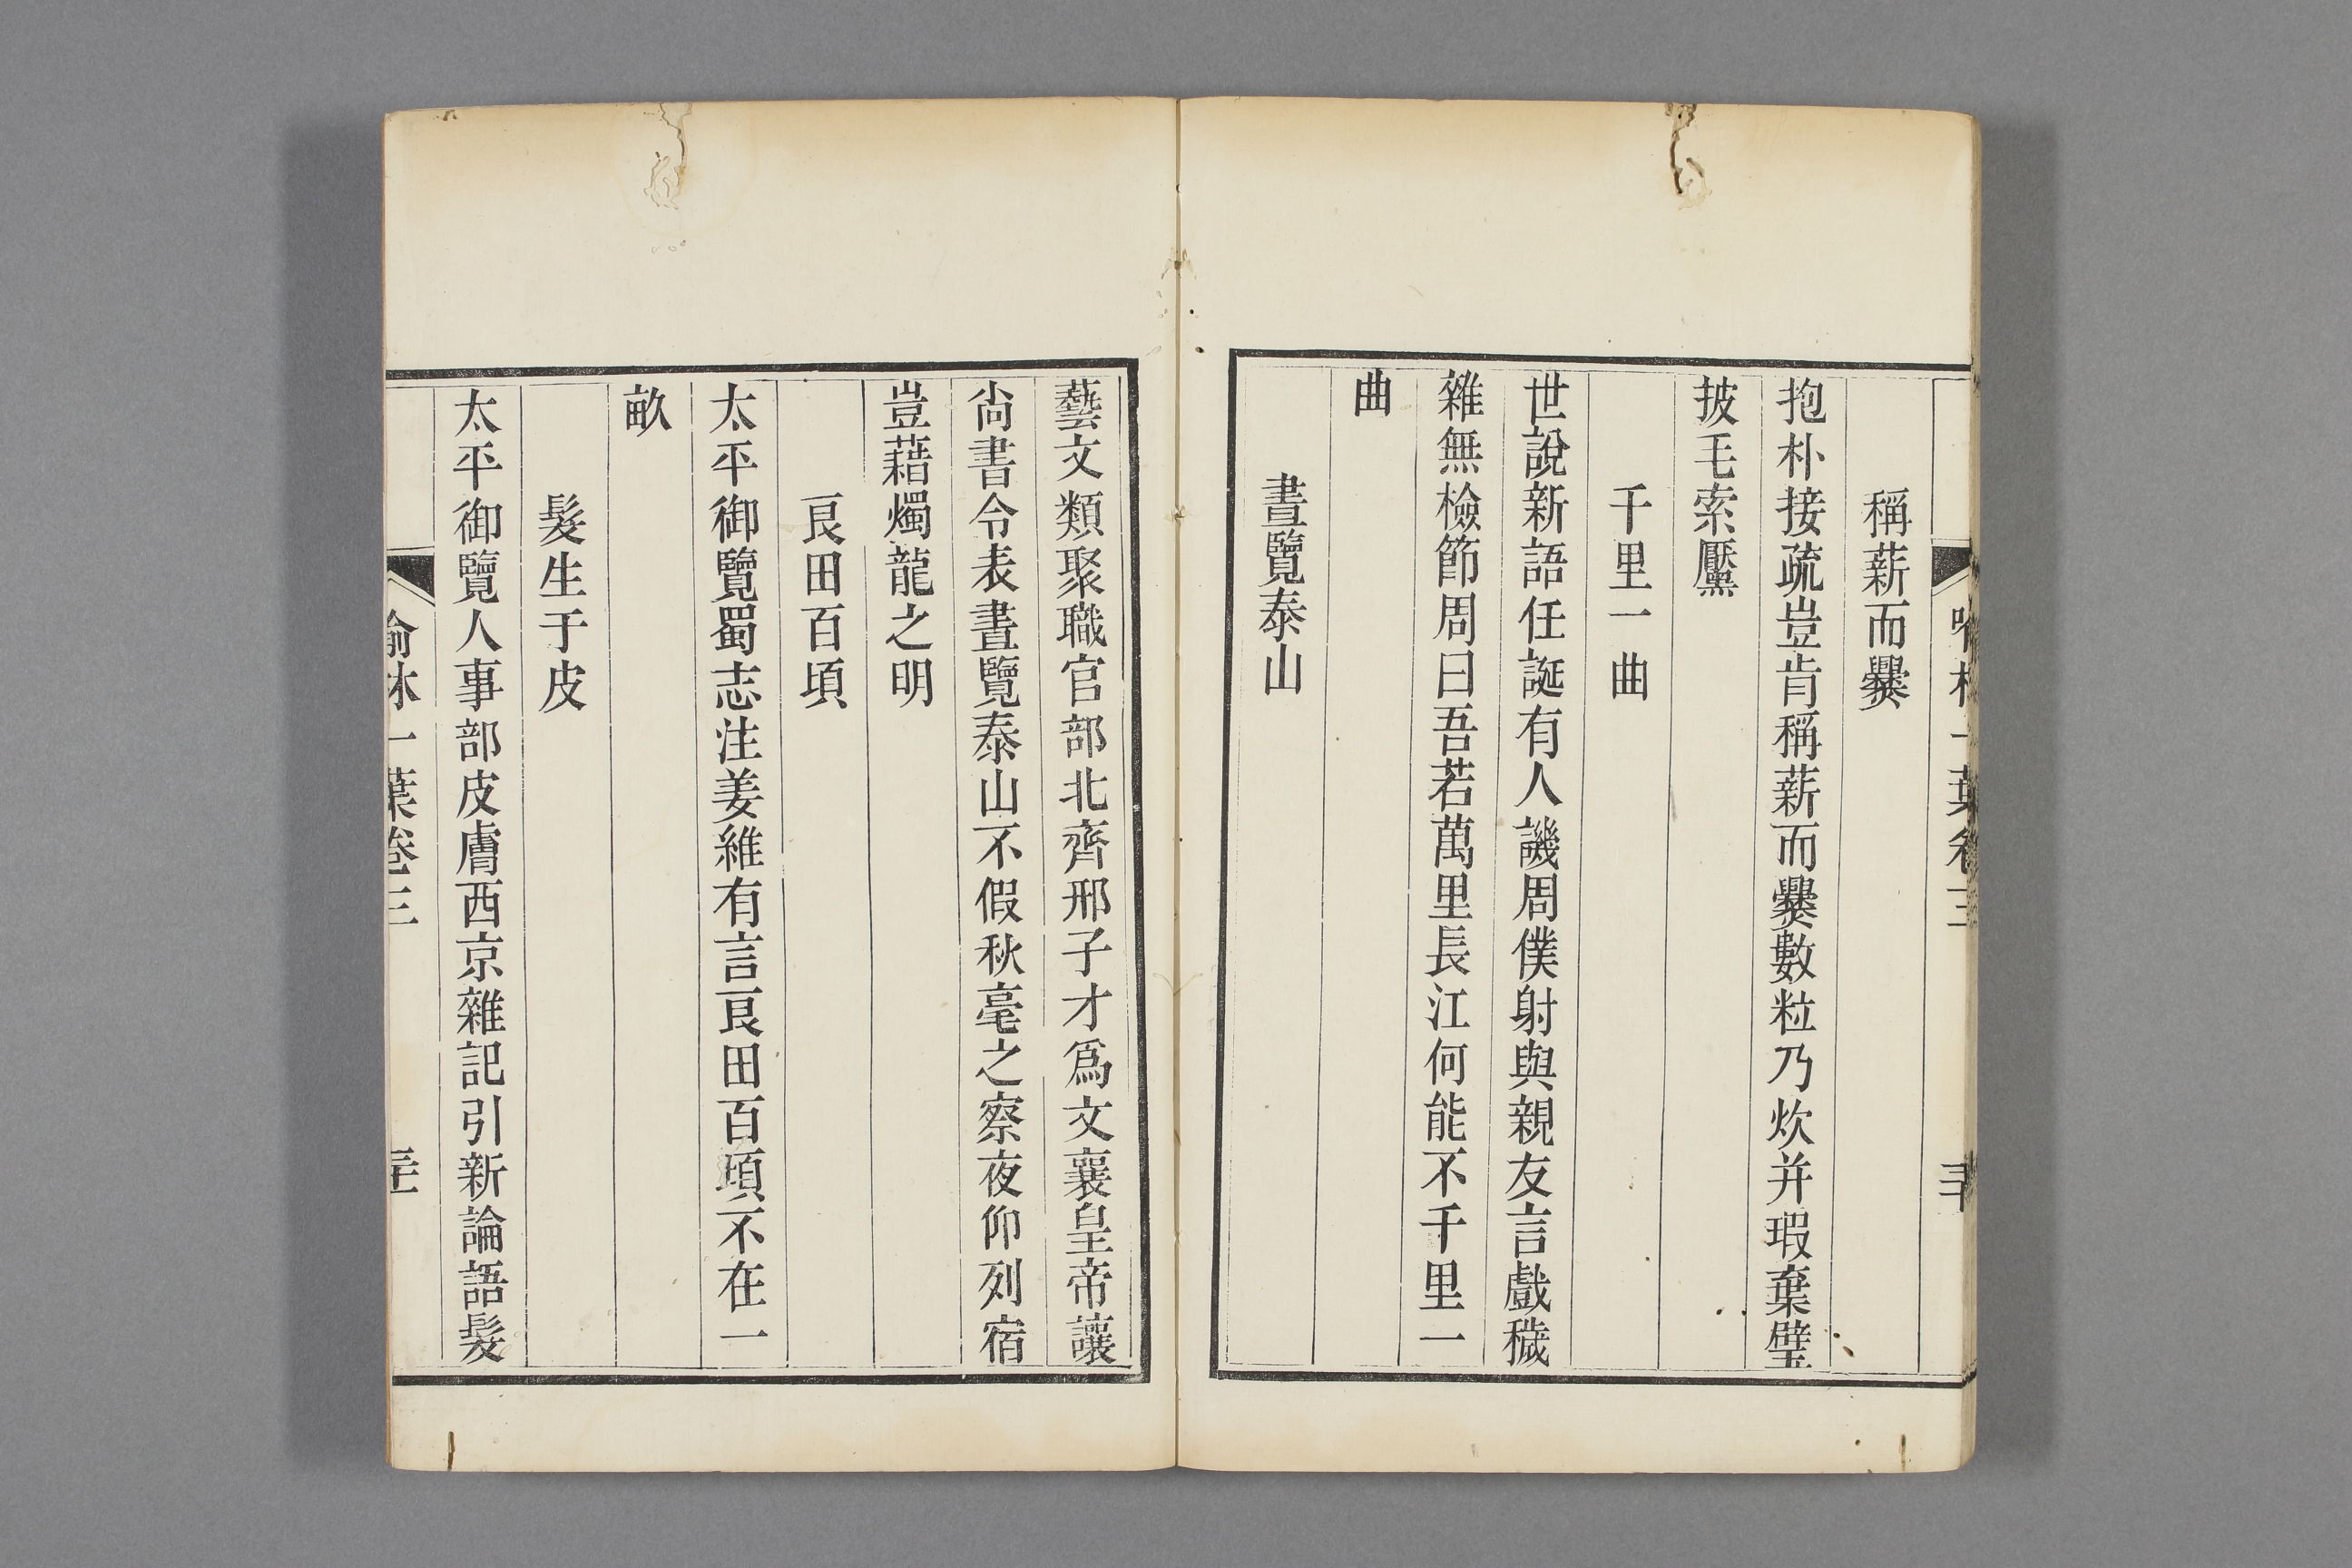 稱薪而爨
抱朴接疏豈肯稱薪而爨數粒乃炊并瑕棄璧
披毛索黶
千里一曲
世說新語任誕有人譏周僕射與親友言戲穢
雜無檢節周曰吾若萬里長江何能不千里一
曲
晝覽泰山
藝文類聚職官部北齊邢子才爲文襄皇帝讓
尚書令表晝覽泰山不假秋毫之察夜仰列宿
豈藉燭龍之明
良田百頃
太平御覽蜀志注姜維有言良田百頃不在一
畝
髮生于皮
太平御覽人事部皮膚西京雜記引新論語髮
喻林一葉卷三